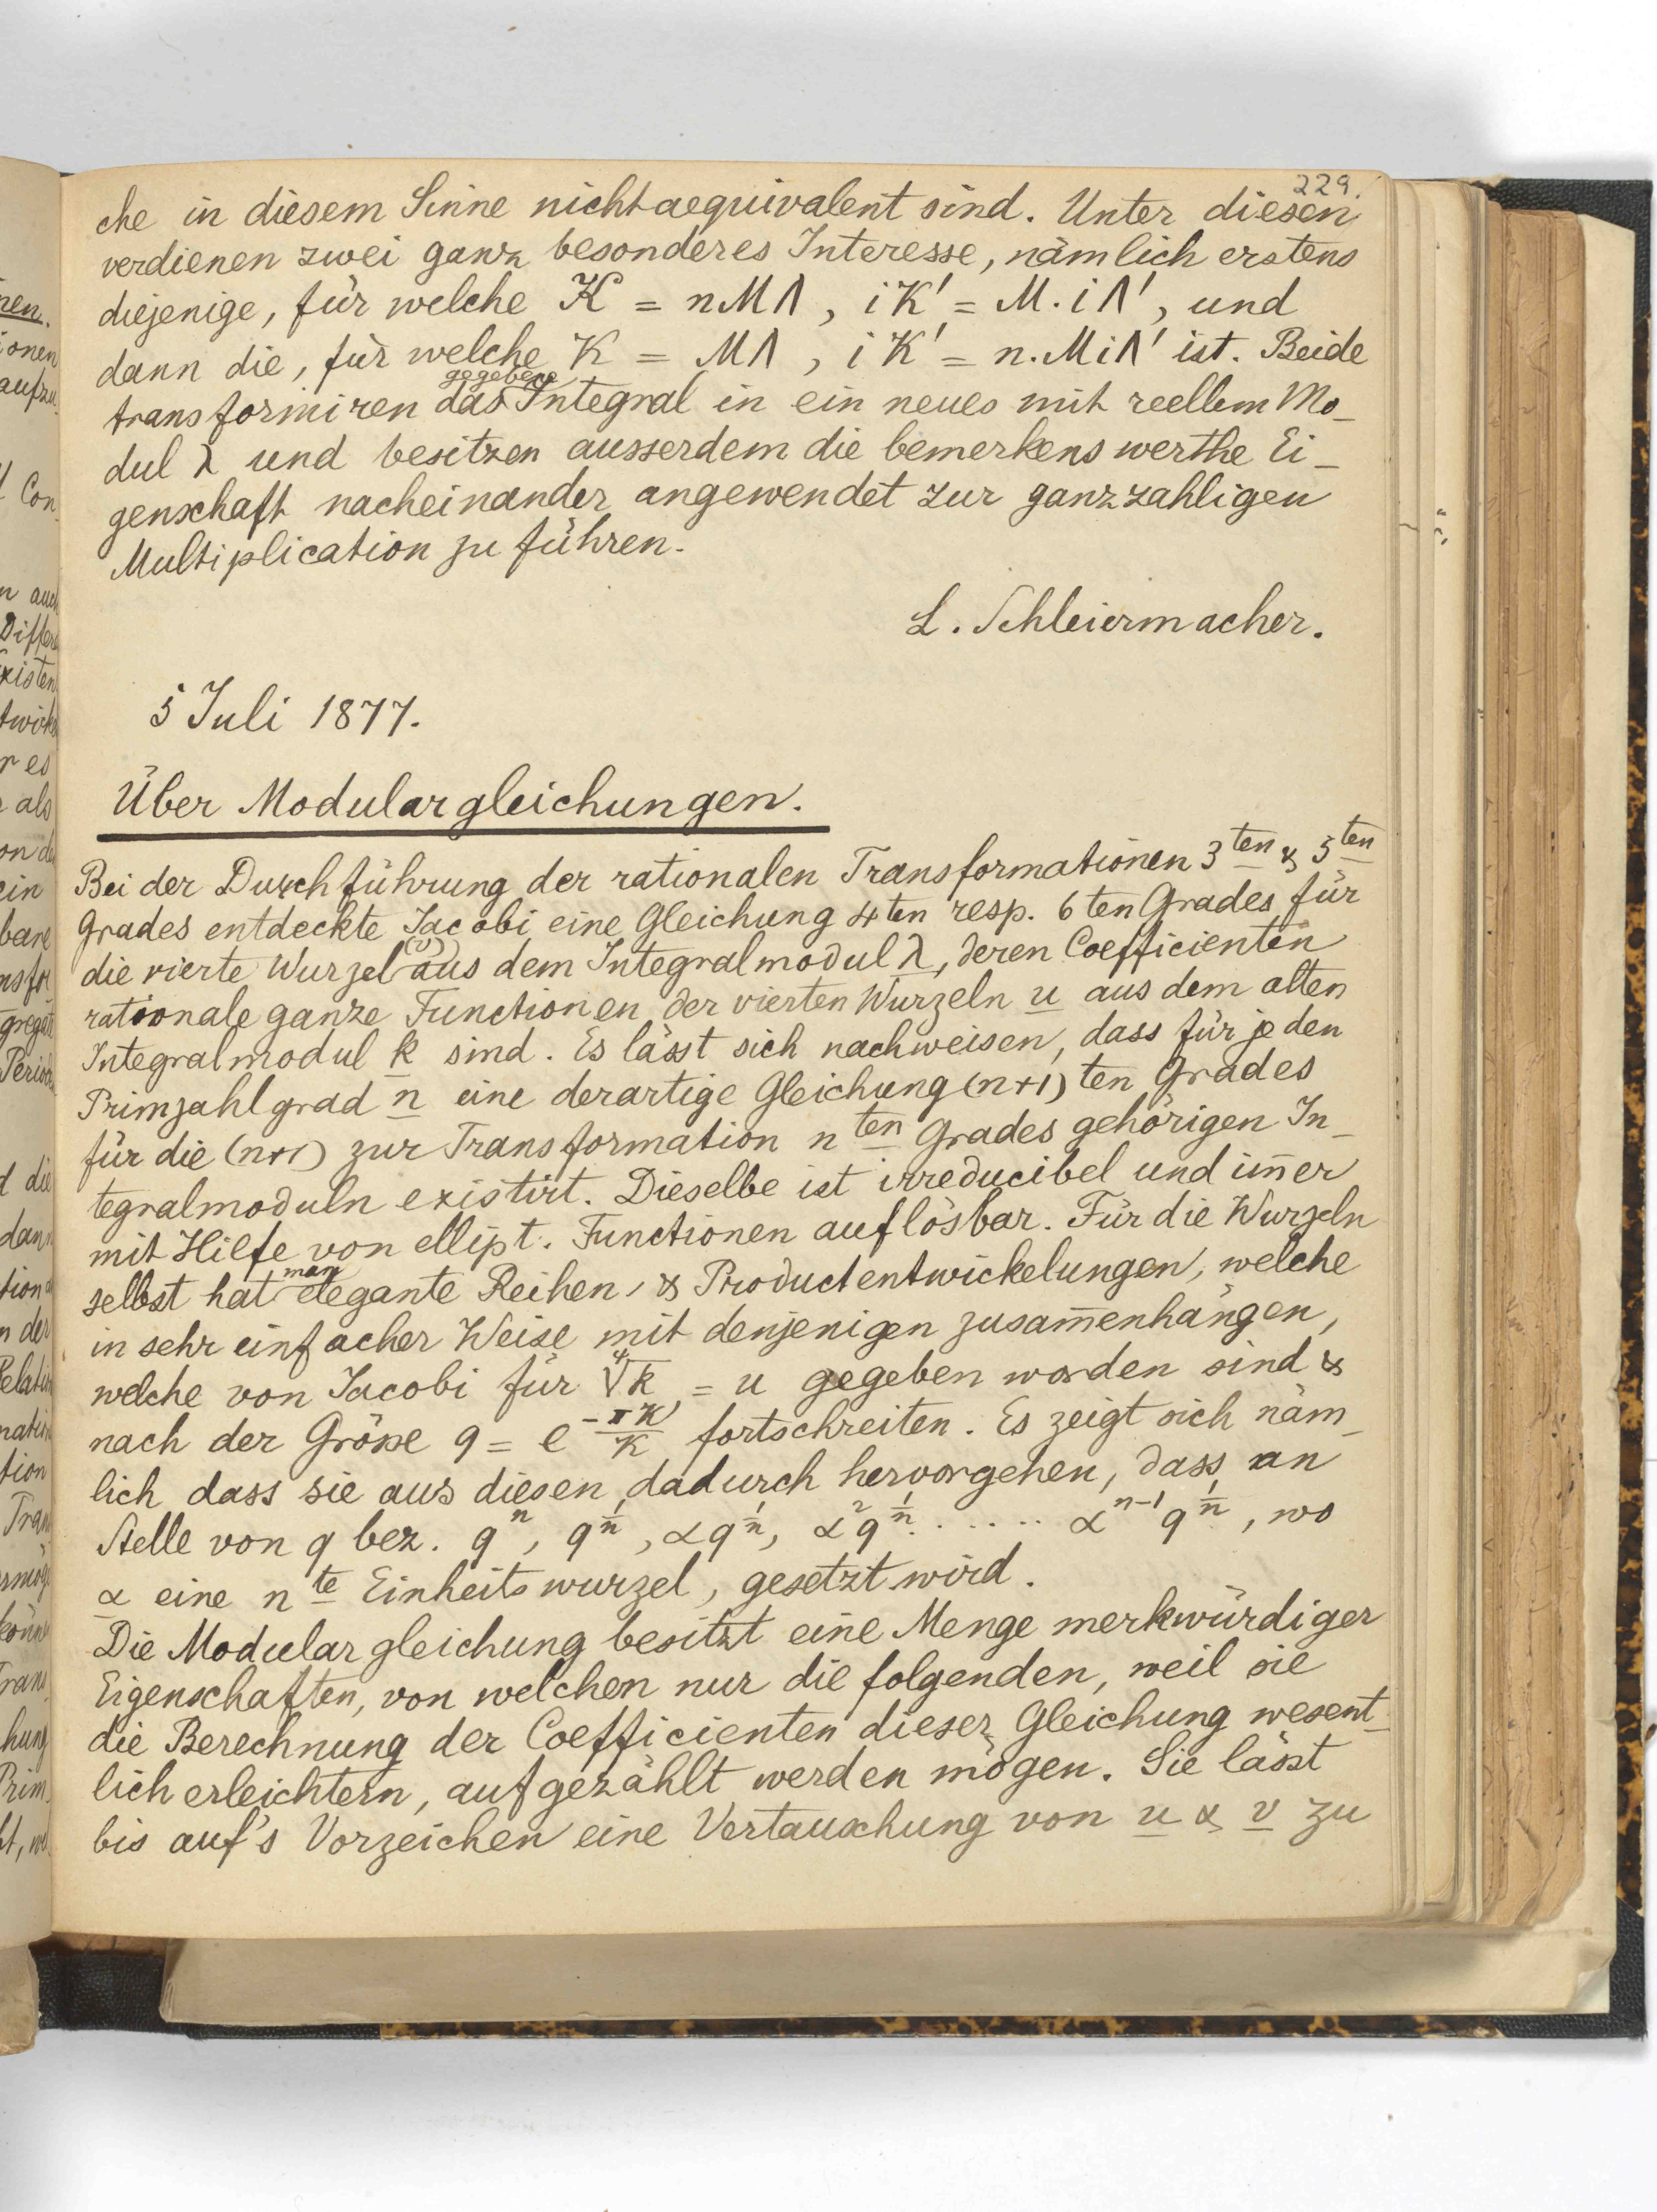 229.
che in diesem Sinne nicht aequivalent sind. Unter diesen
verdienen zwei ganz besonderes Interesse, nämlich erstens
diejenige, für welche K = nMΛ, iK' = M.iΛ', und
dann die, für welche K = MΛ, iK' = n.MiΛ' ist. Beide
gegebene
transformiren das Integral in ein neues mit reellem Mo-
dul λ und besitzen ausserdem die bemerkenswerthe Ei-
genschaft nacheinander angewendet zur ganzzahligen
Multiplication zu führen.
L. Schleiermacher.
5 Juli 1877.
Über Modulargleichungen.
Bei der Durchführung der rationalen Transformationen 3ten & 5ten
Grades entdeckte Jacobi eine Gleichung 4ten resp. 6ten Grades für
(v)
die vierte Wurzel aus dem Integralmodul λ, deren Coefficienten
rationale ganze Functionen der vierten Wurzeln u aus dem alten
Integralmodul k sind. Es lässt sich nachweisen, dass für jeden
Primzahlgrad n eine derartige Gleichung (n+1)ten Grades
für die (n+1) zur Transformation nten Grades gehörigen In-
tegralmoduln existirt. Dieselbe ist irreducibel und im̄er
mit Hilfe von ellipt. Functionen auflösbar. Für die Wurzeln
man
selbst hat elegante Reihen, & Productentwickelungen, welche
in sehr einfacher Weise mit denjenigen zusam̄enhängen,
welche von Jacobi für ∜k = u gegeben worden sind &
nach der Größe q = e^{-πK'/K} fortschreiten. Es zeigt sich näm-
lich dass sie aus diesen dadurch hervorgehen, dass an
Stelle von q bez. q^n, q^{1/n}, αq^{1/n}, α^2q^{1/n} ...... α^{n-1}q^{1/n}, wo
α eine nte Einheitswurzel, gesetzt wird.
Die Modulargleichung besitzt eine Menge merkwürdiger
Eigenschaften, von welchen nur die folgenden, weil sie
die Berechnung der Coefficienten dieser Gleichung wesent-
lich erleichtern, aufgezählt werden mögen. Sie lässt
bis auf's Vorzeichen eine Vertauschung von u & v zu